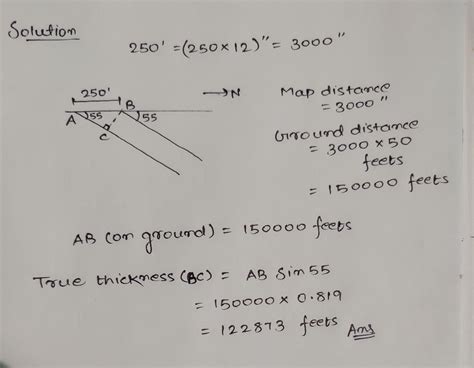 Solution
250' = (250 x 12)" = 3000"
250'
→ N
A
55
B
55
C
Map distance
= 3000"
Ground distance
= 3000 x 50
feets
= 150000 feets
AB (on ground) = 150000 feets
True thickness (BC) = AB Sin 55
= 150000 x 0.819
= 122873 feets Ans